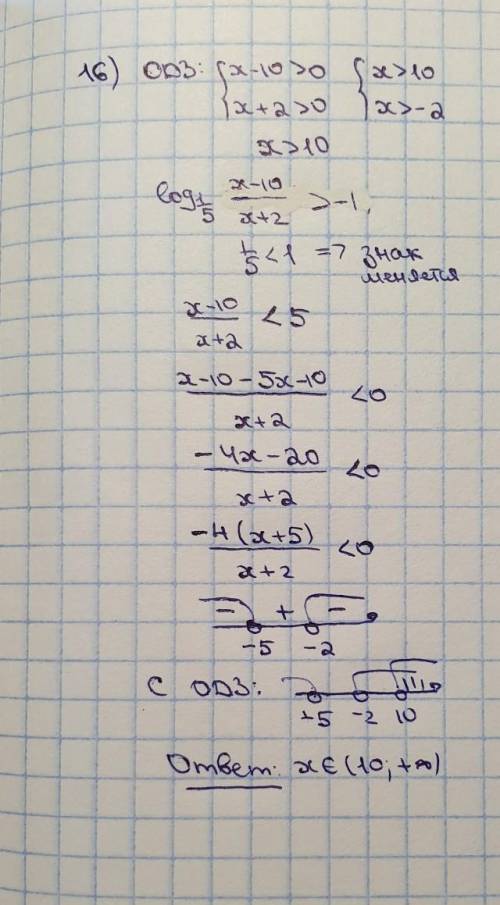 16) ОДЗ: { x-10>0 { x>10
x+2>0 x>-2
x>10
log 1/5 (x-10)/(x+2) > -1,
1/5 < 1 => знак
меняется
(x-10)/(x+2) < 5
(x-10-5x-10)/(x+2) < 0
(-4x-20)/(x+2) < 0
(-4(x+5))/(x+2) < 0
- + -
-5 -2
С ОДЗ:
-5 -2 10
Ответ: x∈(10;+∞)